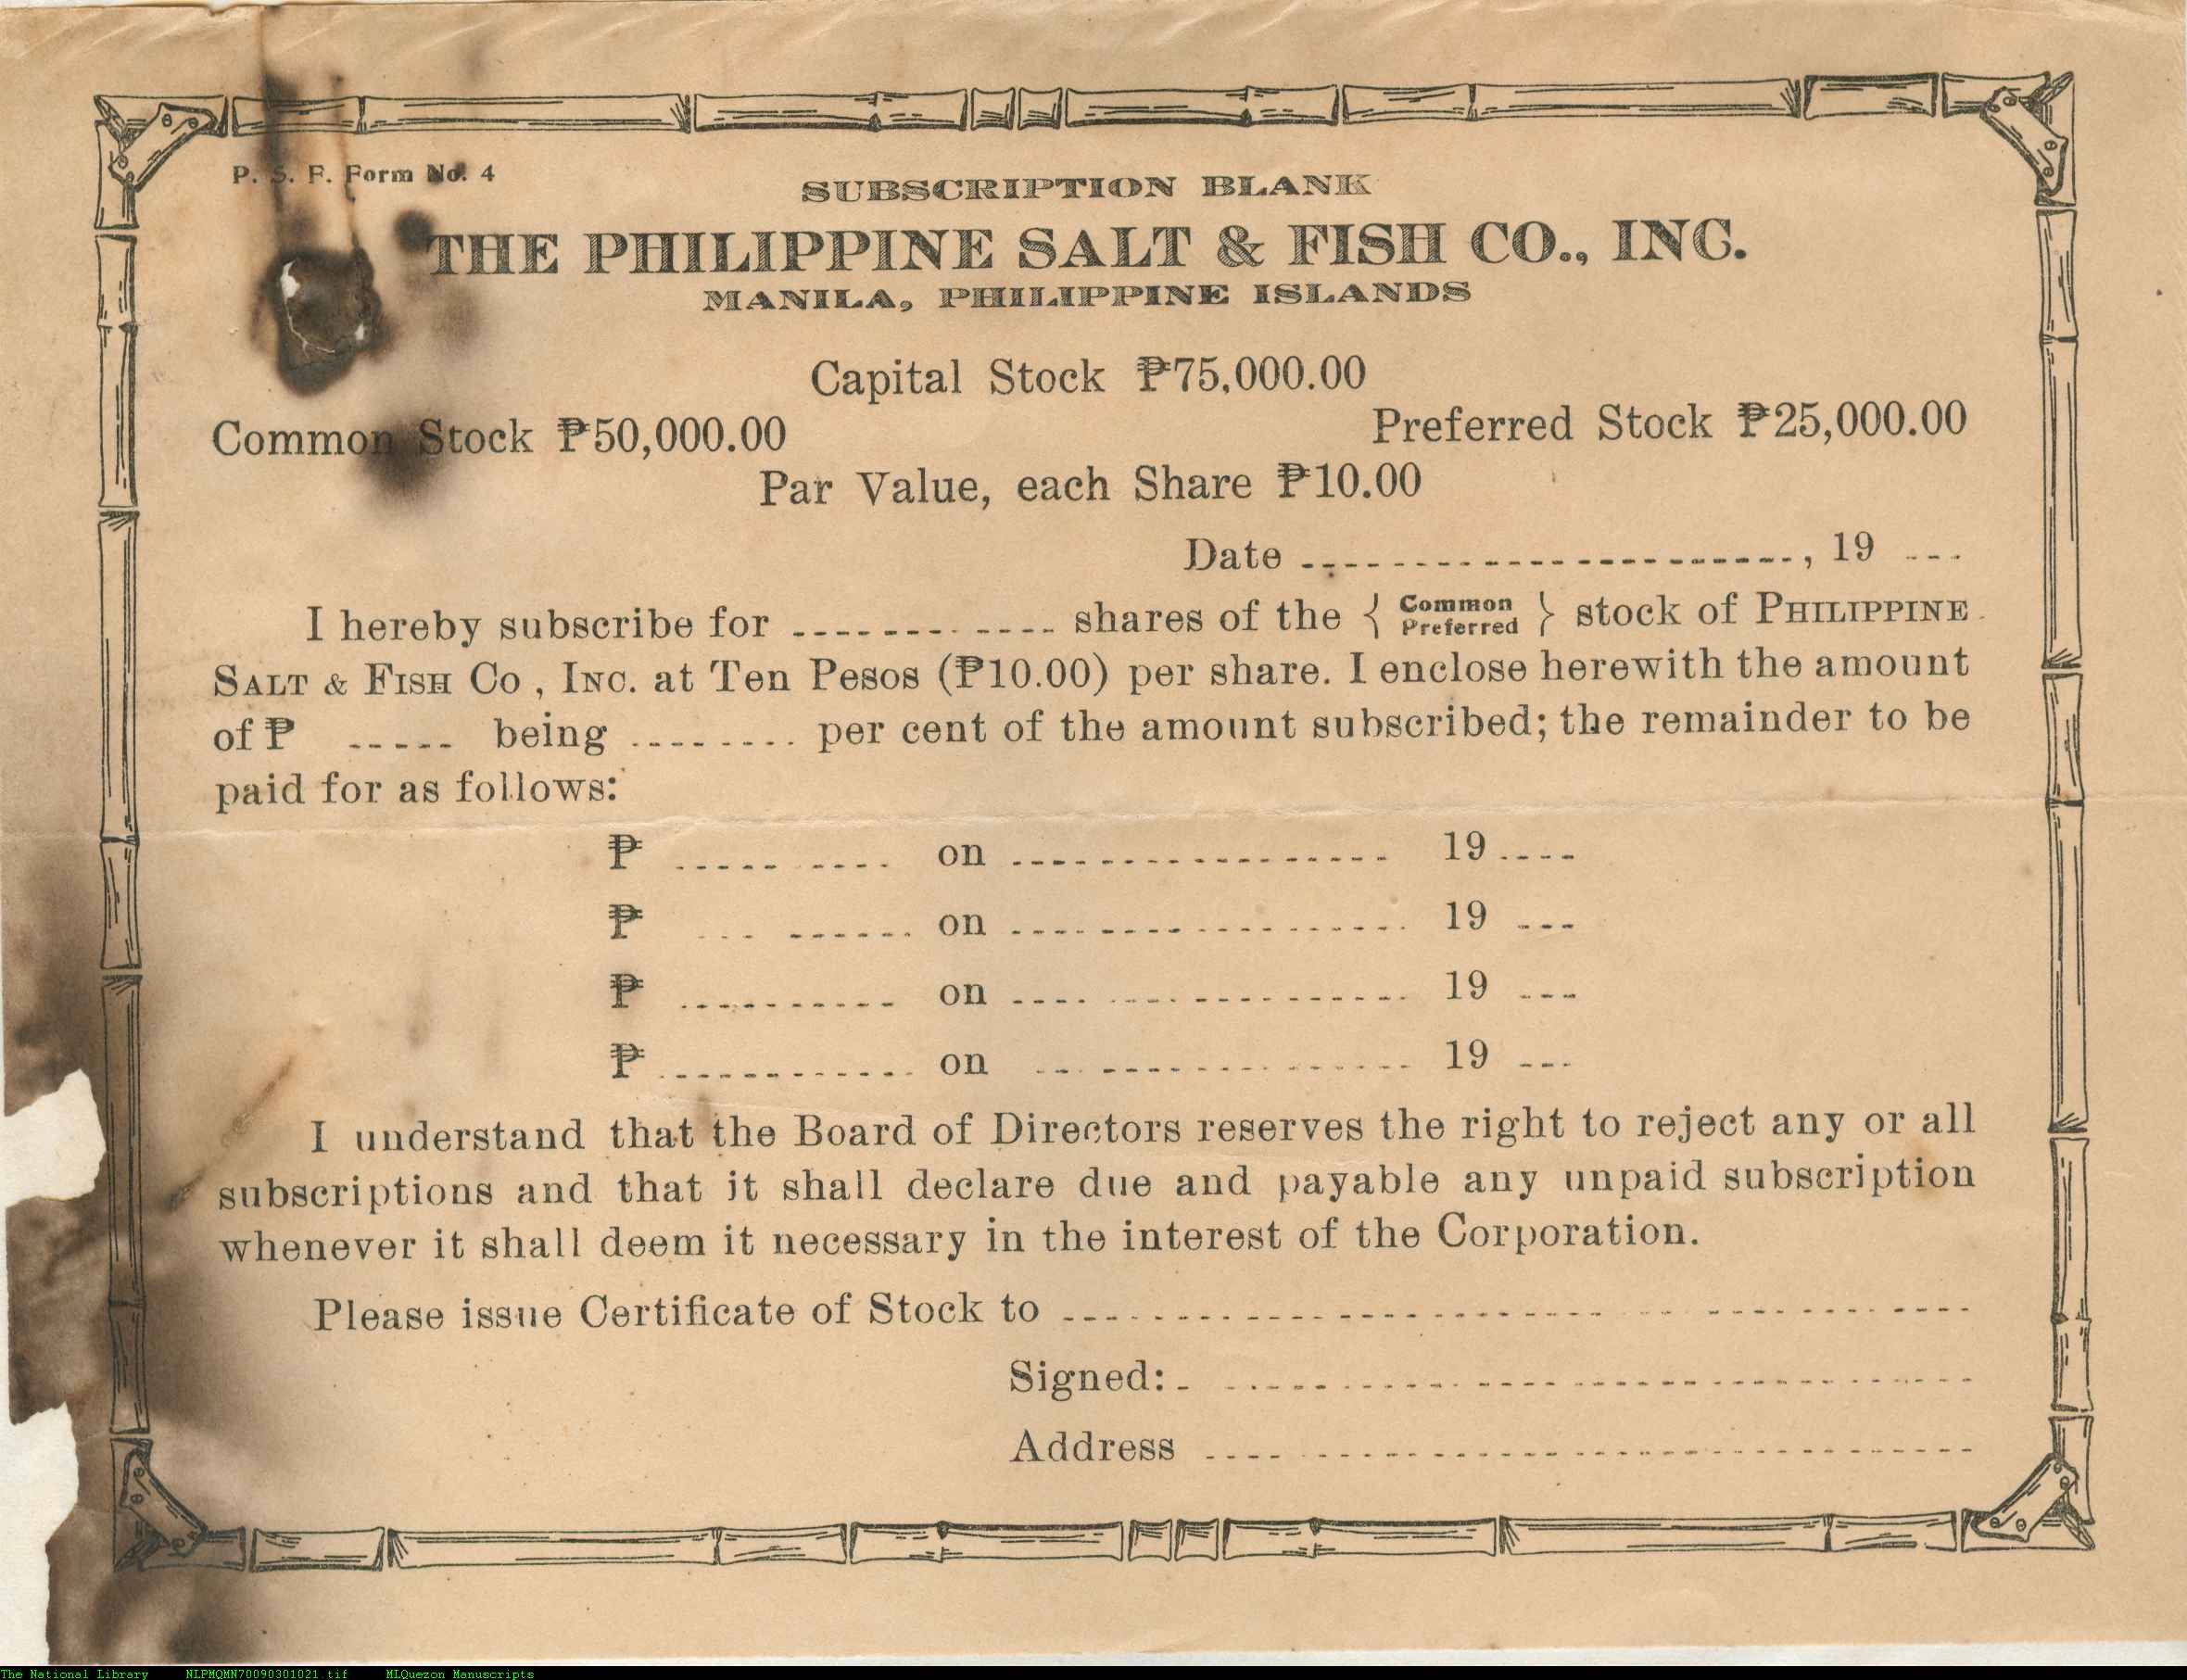 P. S. F. Form No. 4
SUBSCRIPTION BLANK
THE PHILIPPINE SALT & FISH CO., INC.
MANILA, PHILIPPINE ISLANDS
Capital Stock ₱75,000.00
Common Stock ₱50,000.00 Preferred Stock ₱25,000.00
Par Value, each Share ₱10.00
Date ......................, 19 ...
I hereby subscribe for ............ shares of the { Common Preferred } stock of PHILIPPINE
SALT & FISH CO , INC. at Ten Pesos (₱10.00) per share. I enclose herewith the amount
of ₱ ..... being ........ per cent of the amount subscribed; the remainder to be
paid for as follows:
₱ .......... on ................. 19 ....
₱ .......... on ................. 19 ...
₱ .......... on ................. 19 ...
₱ .......... on ................. 19 ...
I understand that the Board of Directors reserves the right to reject any or all
subscriptions and that it shall declare due and payable any unpaid subscription
whenever it shall deem it necessary in the interest of the Corporation.
Please issue Certificate of Stock to ..............................
Signed: ..............................
Address ..............................
The National Library NLPMQMN70090301021.tif MLQuezon Manuscripts